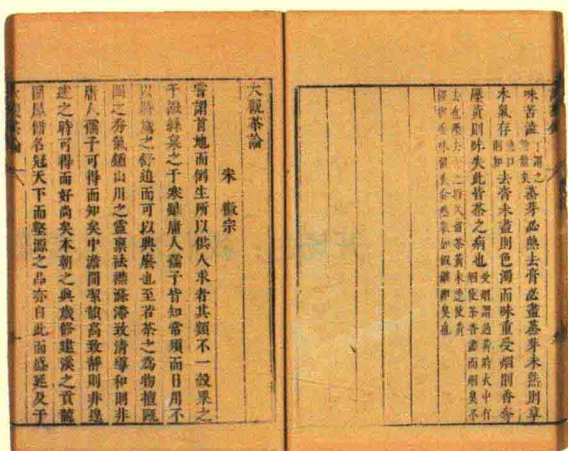 味苦澁
蒸芽必熟去膏必盡蒸芽未熟則草
木氣存
去膏未盡則色濁而味重受烟則香奪
壓黃則味失此皆茶之病也
大觀茶論
宋 徽宗
嘗謂首地而倒生所以供人求者其類不一穀粟之
于饑絲枲之于寒雖庸人孺子皆知常須而日用不
以時歲之舒迫而可以興廢也至若茶之為物擅甌
閩之秀氣鍾山川之靈稟祛襟滌滯致清導和則非
庸人孺子可得而知矣中澹間潔韻高致靜則非遑
遽之時可得而好尚矣本朝之興歲修建溪之貢龍
團鳳餅名冠天下而壑源之品亦自此而盛延及于